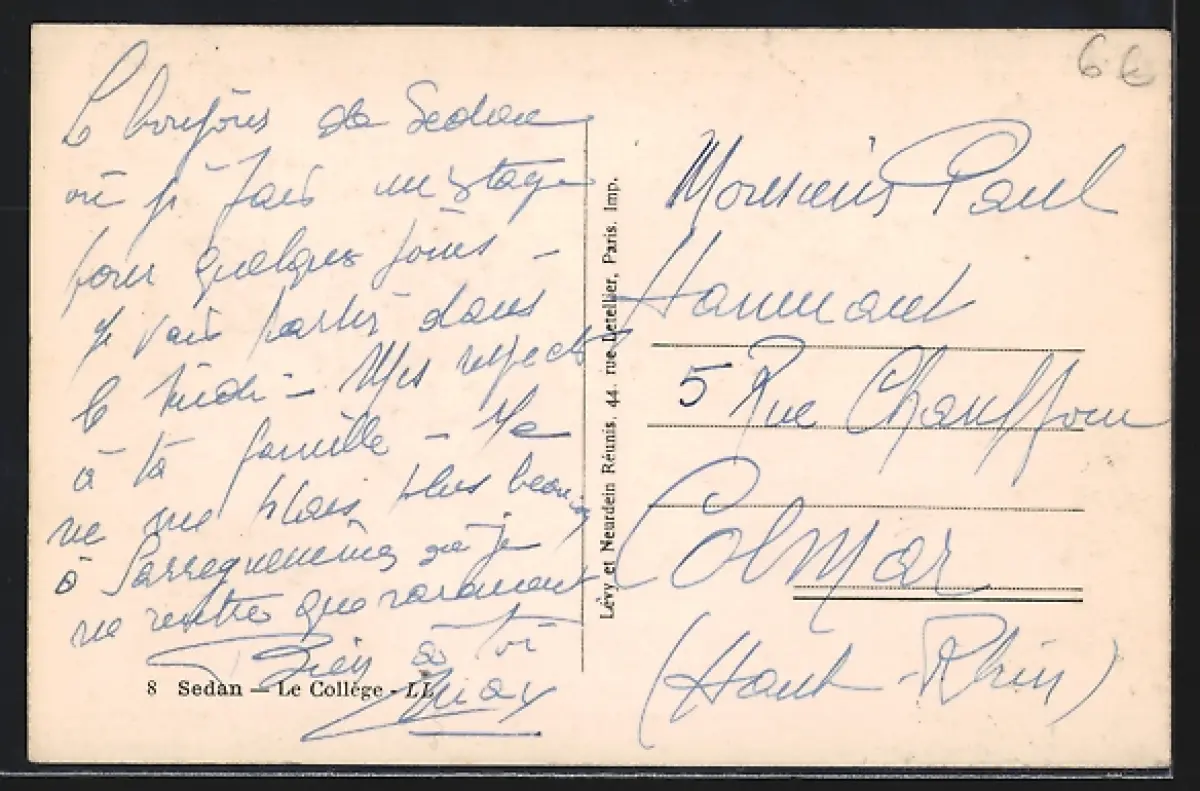 Le bonjour de Sedan
où je fais un stage
pour quelques jours -
Je vais partir dans
le Midi - Mes respects
à ta famille - Je
ne me plais plus beaucoup
à Sarreguemines où je
ne rentre que rarement
Bien à toi
8 Sedan - Le Collège - LL
Lévy et Neurdein Réunis, 44, rue Letellier, Paris. Imp.
6 €
Monsieur Paul
5 Rue Chauffour
Colmar
(Haut-Rhin)